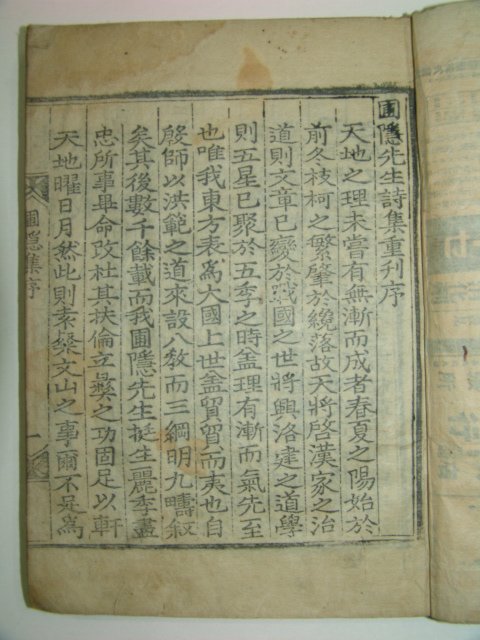 圃隱先生詩集重刋序
天地之理未嘗有無漸而成者春夏之陽始於
前冬枝柯之繁肇於纔落故天將啓漢家之治
道則文章已變於戰國之世將興洛建之道學
則五星已聚於五季之時盖理有漸而氣先至
也唯我東方表為大國上世盖貿貿而夷也自
殷師以洪範之道來設八敎而三綱明九疇叙
矣其後數千餘載而我圃隱先生挺生麗季盡
忠所事畢命改杜其扶倫立彜之功固足以軒
天地曜日月然此則素榘文山之事爾不足為
圃隱集序
一